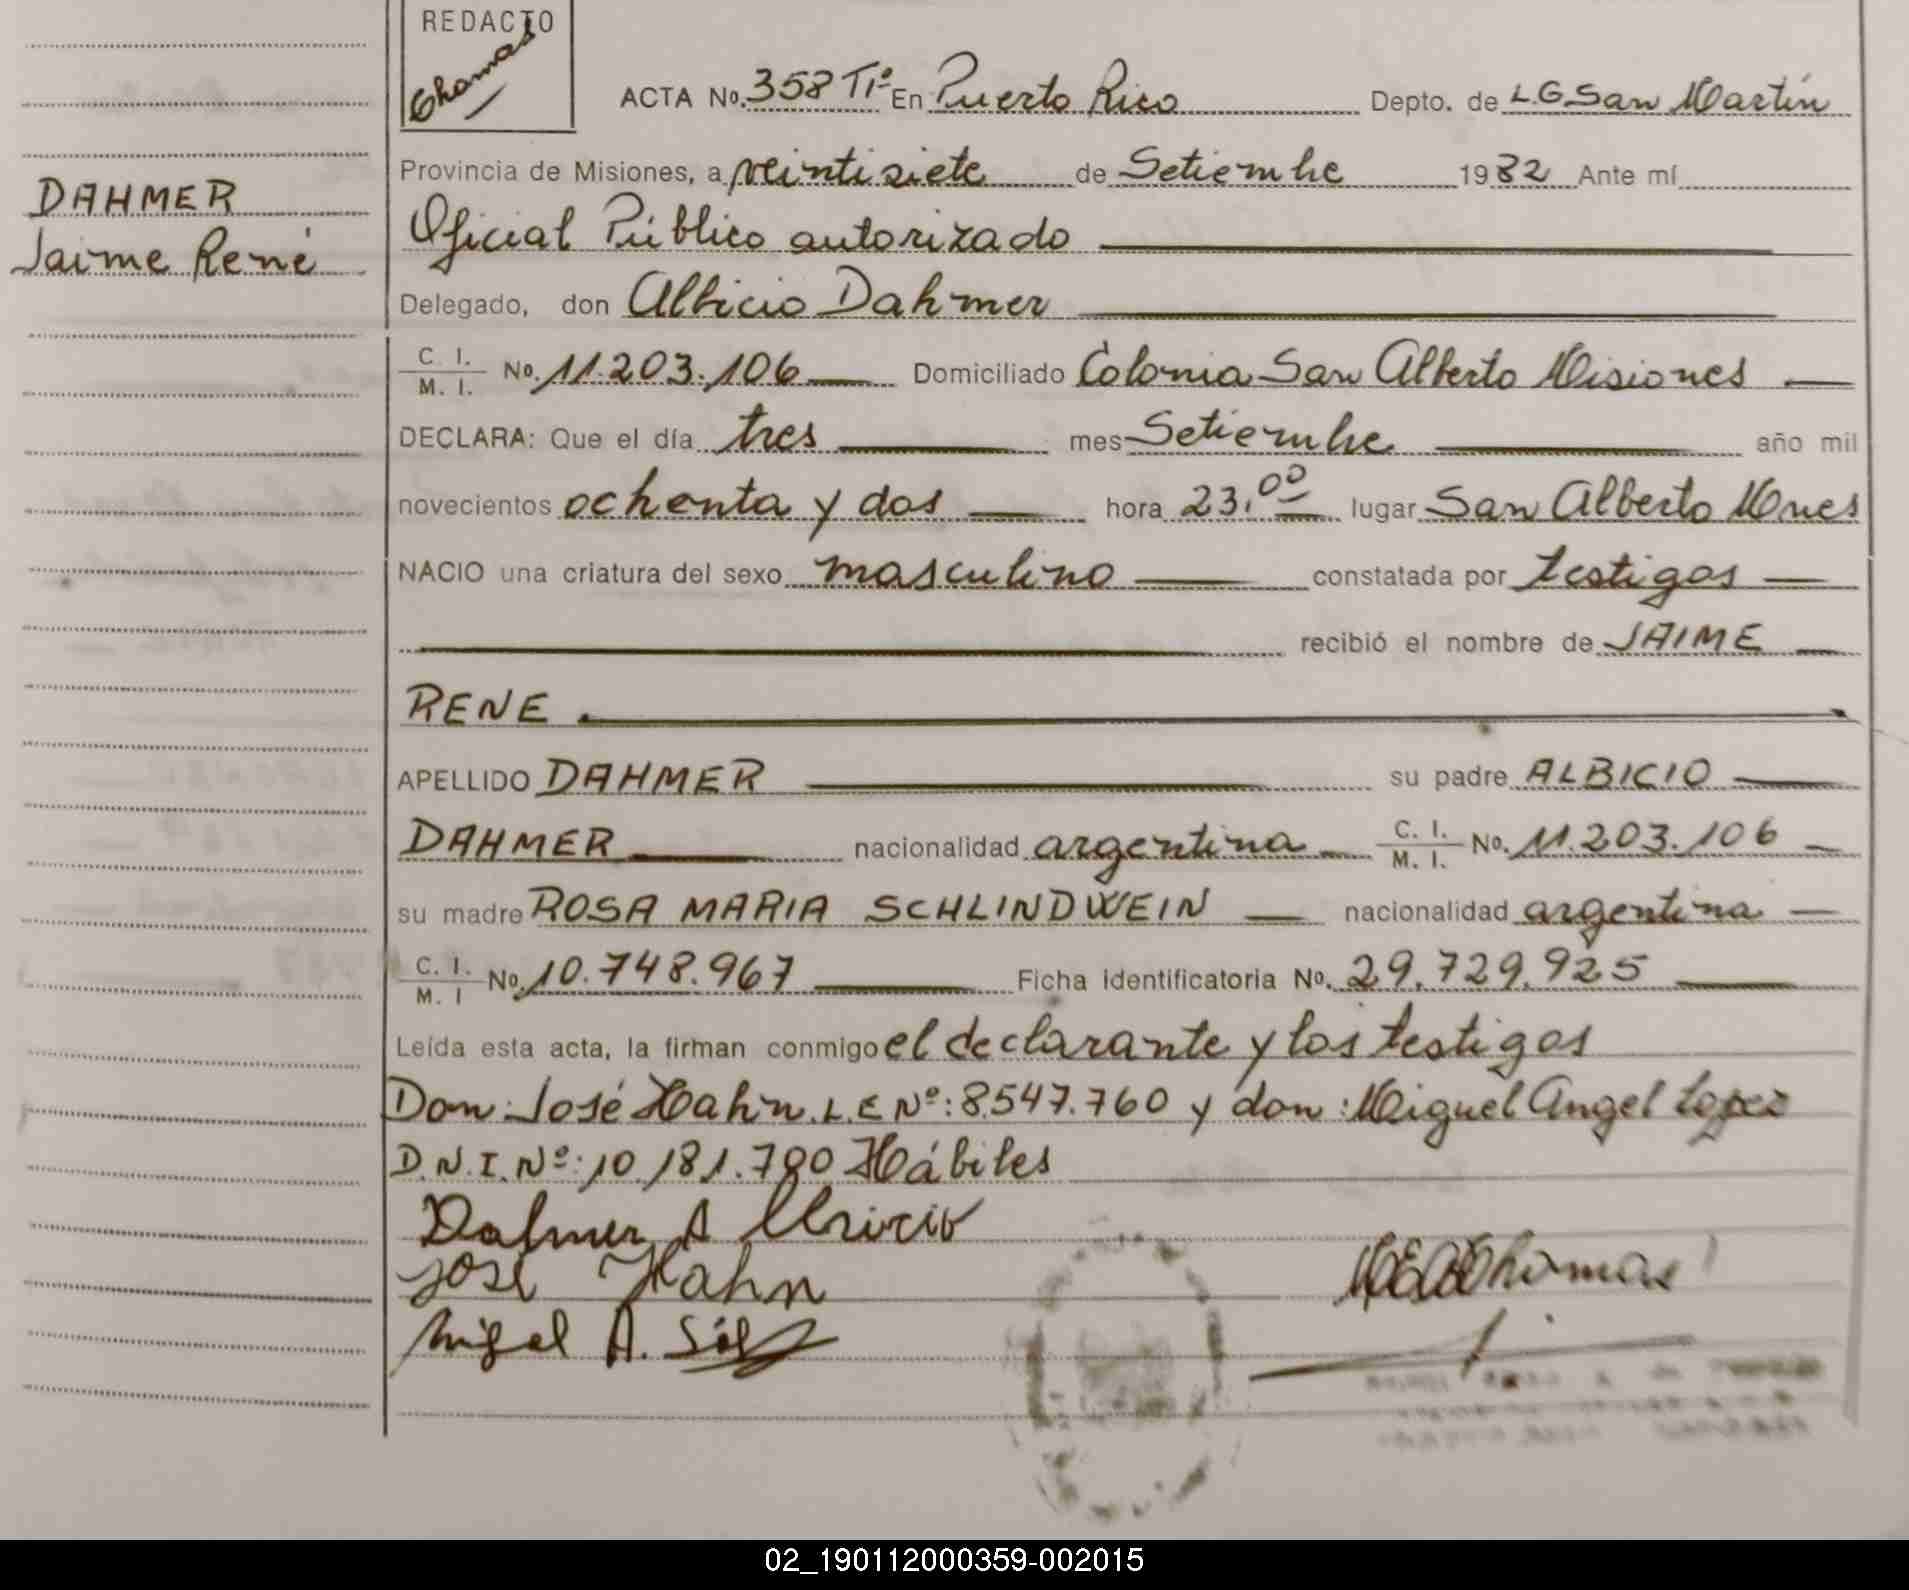 REDACTO
Chamas
ACTA No. 358 Tº En Puerto Rico Depto. de L.G. San Martín
Provincia de Misiones, a veintisiete de Setiembre 1982 Ante mí
DAHMER
Oficial Público autorizado
Jaime René
Delegado, don Albicio Dahmer
C. I. M. I. No. 11.203.106 Domiciliado Colonia San Alberto Misiones
DECLARA: Que el día tres mes Setiembre año mil
novecientos ochenta y dos hora 23.00 lugar San Alberto Mnes
NACIO una criatura del sexo masculino constatada por testigos
recibió el nombre de JAIME
RENE
APELLIDO DAHMER su padre ALBICIO
DAHMER nacionalidad argentina C. I. M. I. No. 11.203.106
su madre ROSA MARIA SCHLINDWEIN nacionalidad argentina
C. I. M. I No. 10.748.967 Ficha identificatoria No. 29.729.925
Leída esta acta, la firman conmigo el declarante y los testigos
Don: José Hahn. L.E Nº: 8.547.760 y don: Miguel Angel Lopez
D.N.I. Nº: 10.181.790 Hábiles
Dahmer Albricio
José Hahn
Migel A.
02_190112000359-002015